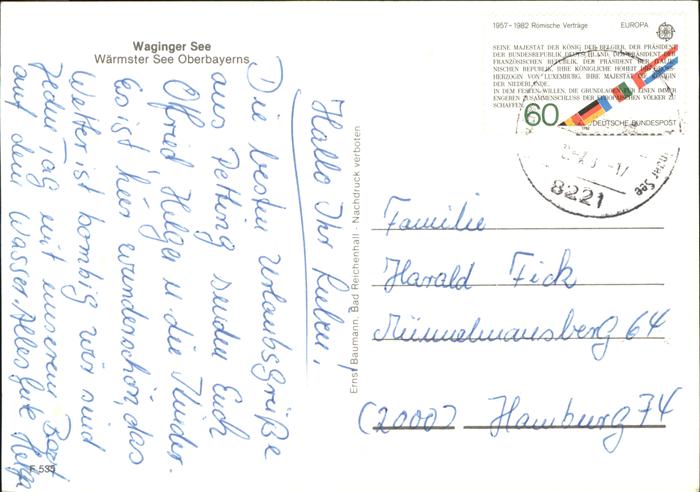 Waginger See
Wärmster See Oberbayerns
Hallo Ihr Lieben!
Die besten Urlaubsgrüße
aus Petting senden Euch
Otfried, Helga u. die Kinder.
Es ist hier wunderschön, das
Wetter ist bombig wir sind
jeden Tag mit unserem Boot
auf dem Wasser. Alles Gute Helga
F 535
Ernst Baumann, Bad Reichenhall - Nachdruck verboten
1957-1982 Römische Verträge EUROPA
SEINE MAJESTÄT DER KÖNIG DER BELGIER, DER PRÄSIDENT
DER BUNDESREPUBLIK DEUTSCHLAND, DER PRÄSIDENT DER
FRANZÖSISCHEN REPUBLIK, DER PRÄSIDENT DER ITALIE-
NISCHEN REPUBLIK, IHRE KÖNIGLICHE HOHEIT DIE GROSS-
HERZOGIN VON LUXEMBURG, IHRE MAJESTÄT KÖNIGIN
DER NIEDERLANDE,
IN DEM FESTEN WILLEN, DIE GRUNDLAGEN FÜR EINEN IMMER
ENGEREN ZUSAMMENSCHLUSS DER EUROPÄISCHEN VÖLKER ZU
SCHAFFEN
60
DEUTSCHE BUNDESPOST
8221
See
Familie
Harald Fick
64
(2000) Hamburg 74